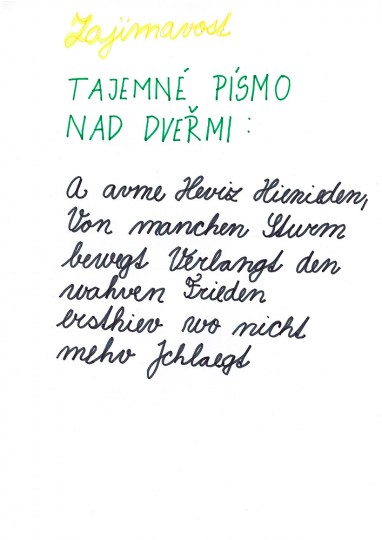 Zajímavost
TAJEMNÉ PÍSMO
NAD DVEŘMI:
A avme Heviz Hienieden,
Von manchen Sturm
bewegt Verlangt den
wahven Frieden
ersthiev wo nicht
mehv Jchlaegt